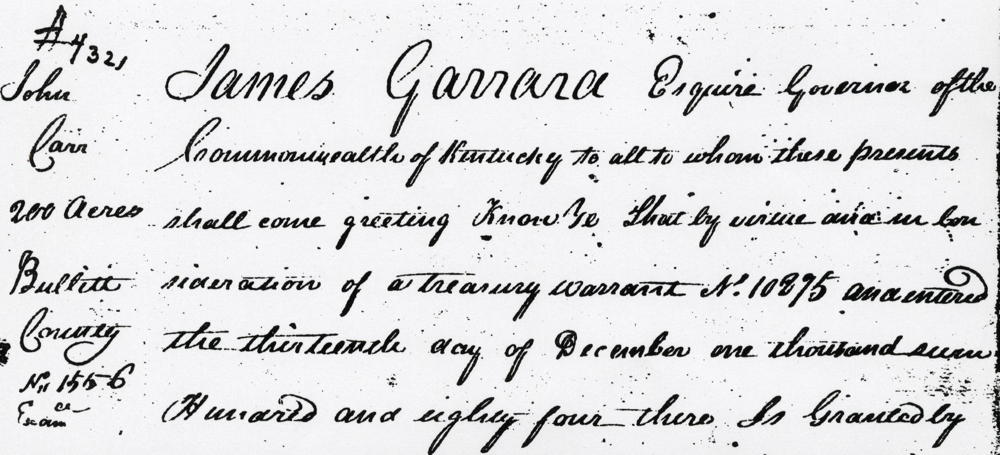 A 4321
John
Carr
200 Acres
Bullitt
County
No. 1556
Exam ce
James Garrard Esquire Governor of the
Commonwealth of Kentucky to all to whom these presents
shall come greeting Know Ye That by virtue and in con
sideration of a treasury warrant No. 10895 and entered
the thirteenth day of December one thousand seven
Hundred and eighty four there Is Granted by